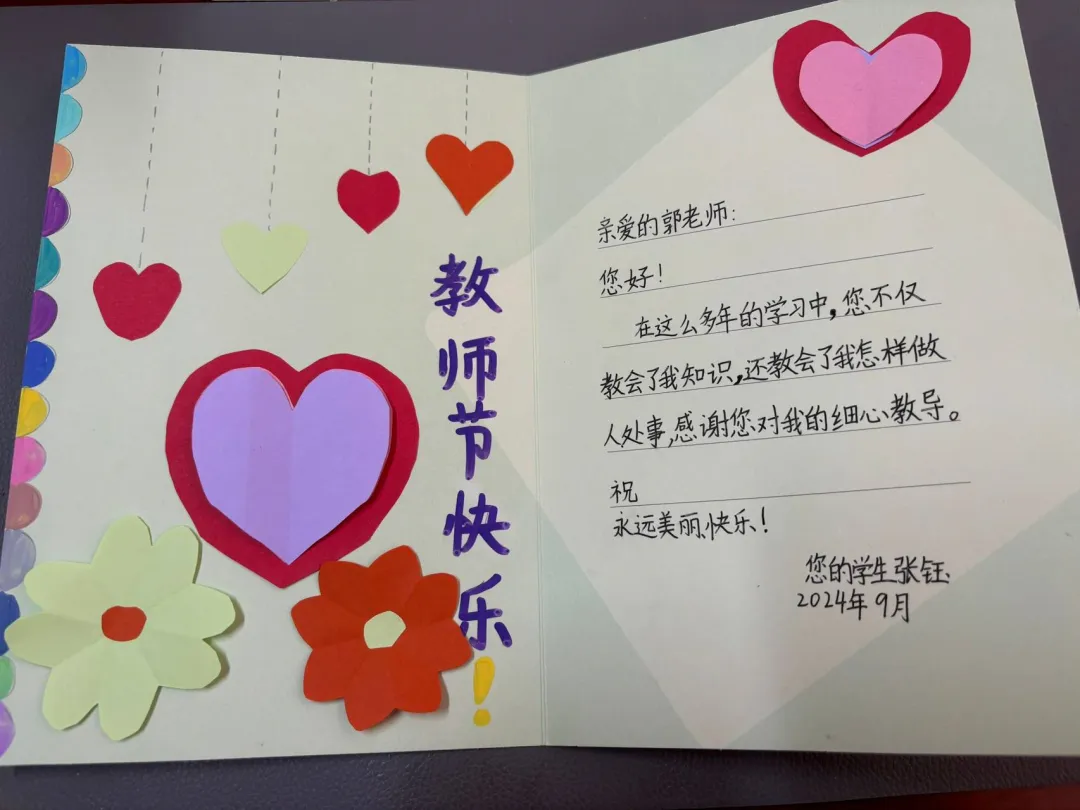 教师节快乐!
亲爱的郭老师:
您好!
在这么多年的学习中,您不仅
教会了我知识,还教会了我怎样做
人处事,感谢您对我的细心教导。
祝
永远美丽、快乐!
您的学生张钰
2024年9月